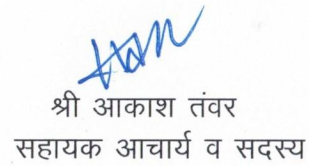 श्री आकाश तंवर
सहायक आचार्य व सदस्य